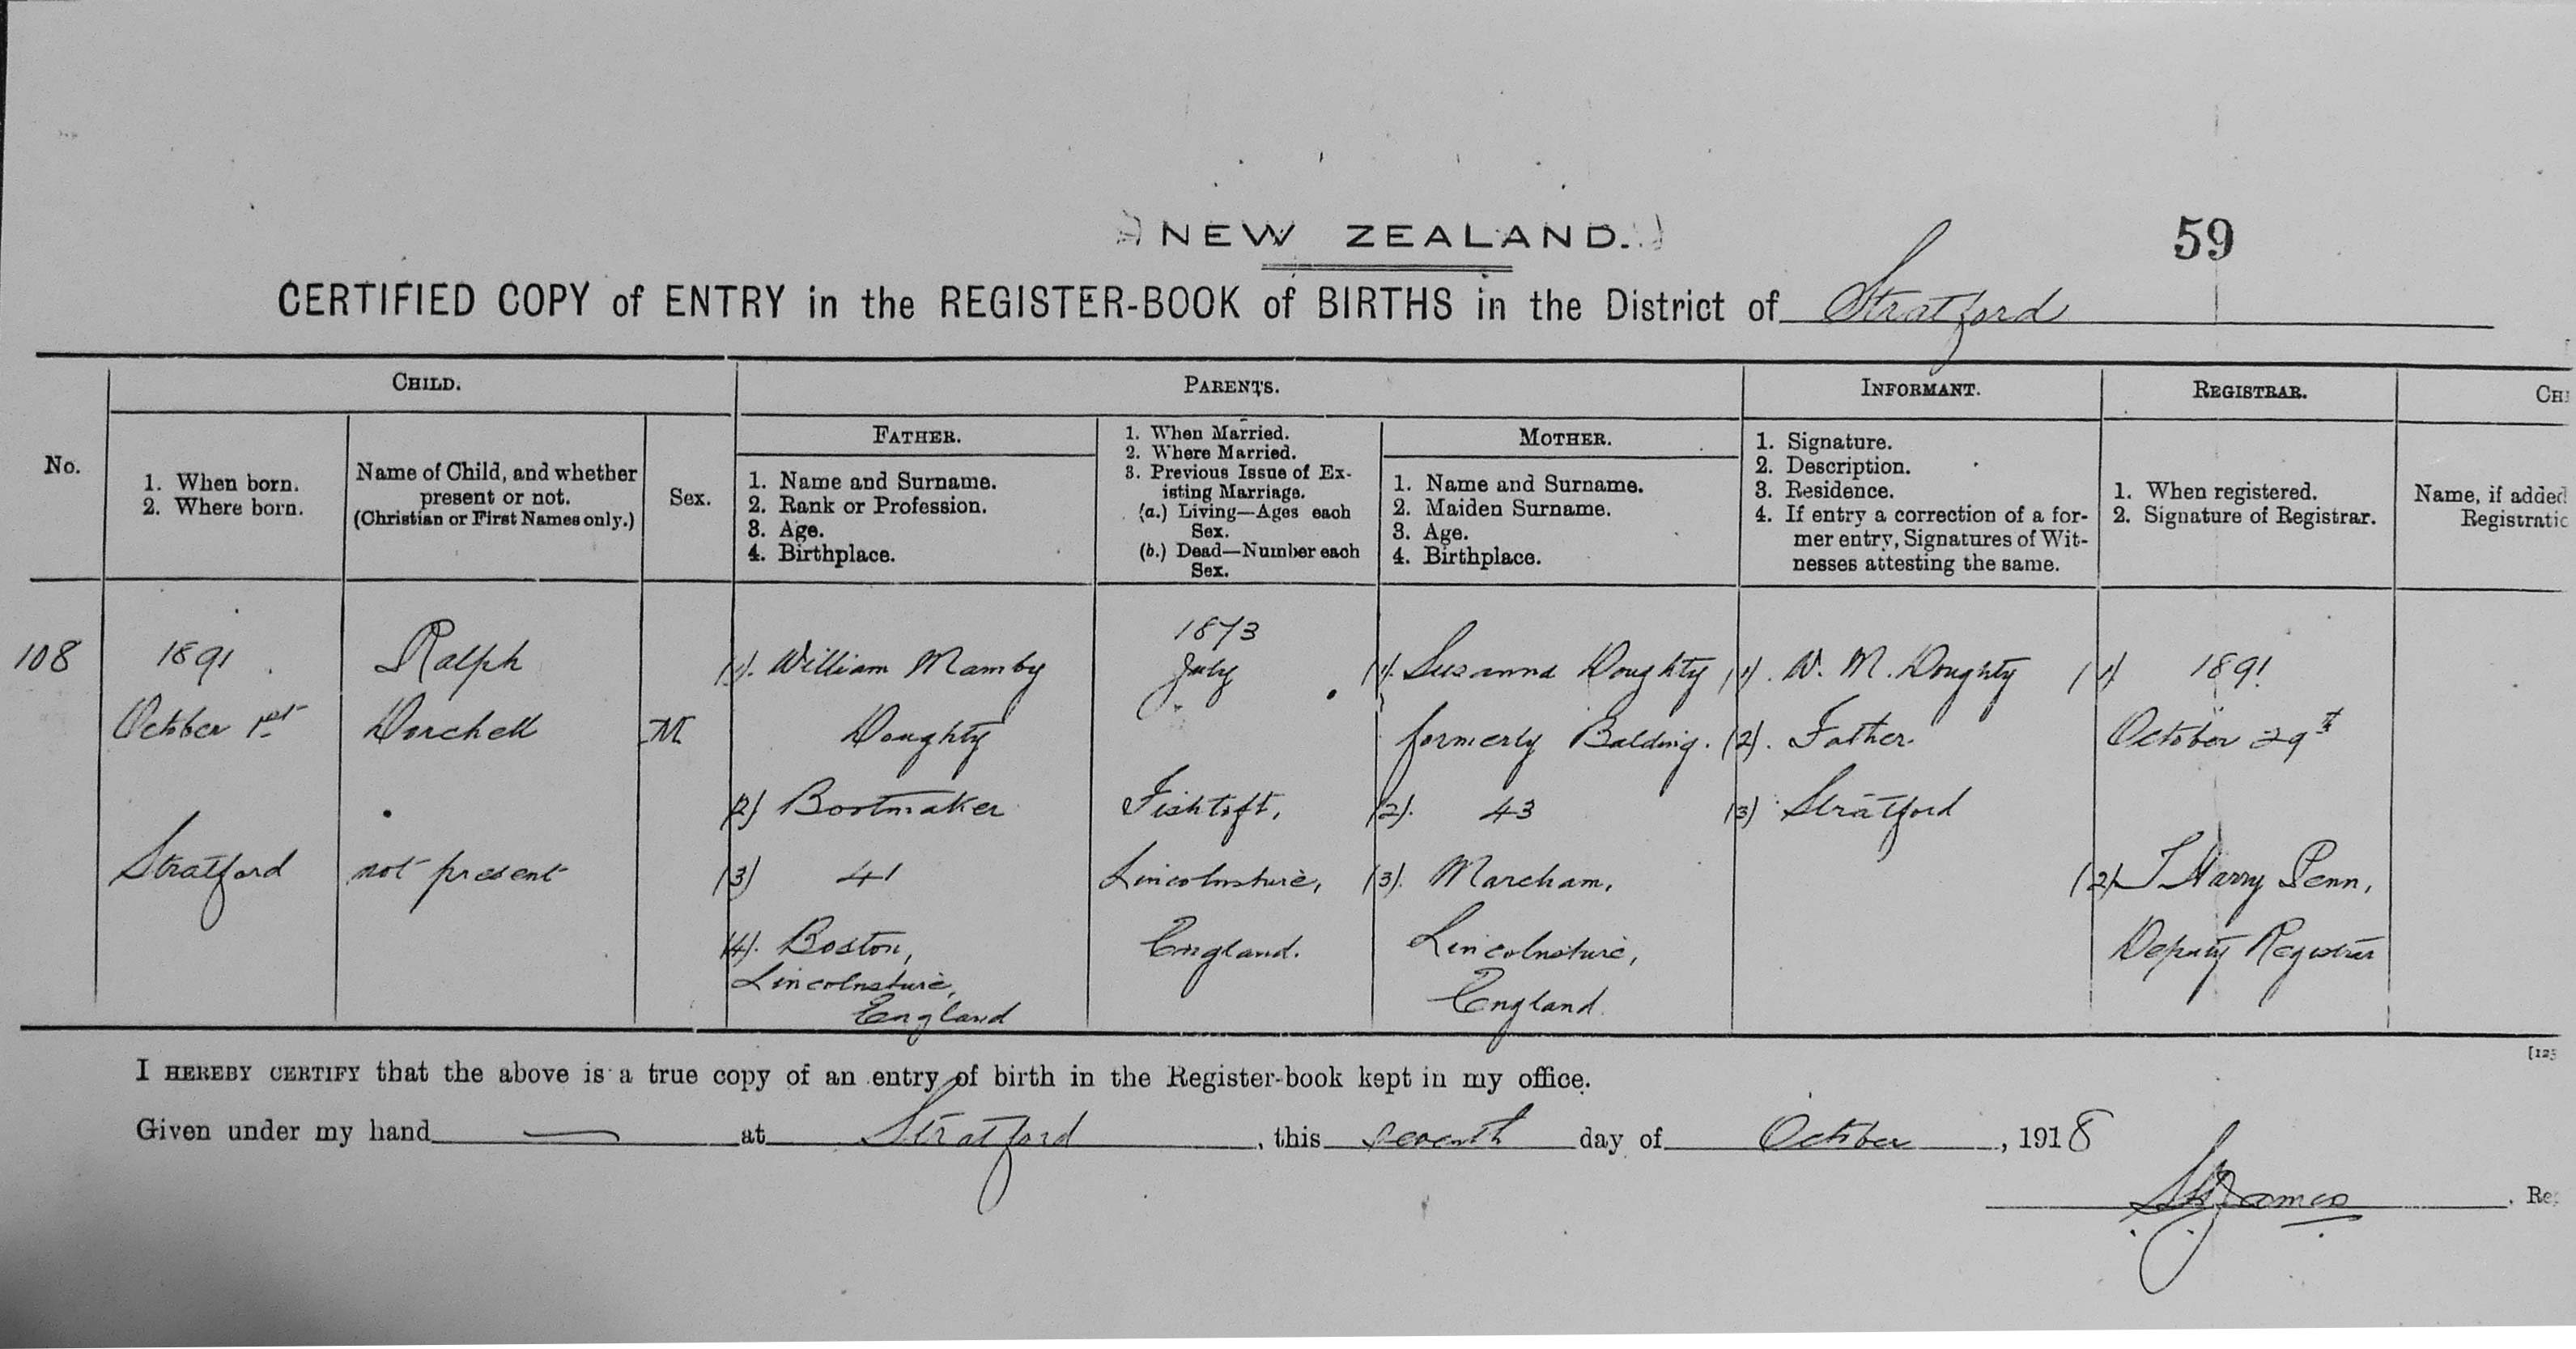 NEW ZEALAND.
59
CERTIFIED COPY of ENTRY in the REGISTER-BOOK of BIRTHS in the District of Stratford
No.
CHILD.
1. When born.
2. Where born.
Name of Child, and whether
present or not.
(Christian or First Names only.)
Sex.
PARENTS.
FATHER.
1. Name and Surname.
2. Rank or Profession.
3. Age.
4. Birthplace.
1. When Married.
2. Where Married.
3. Previous Issue of Ex-
isting Marriage.
(a.) Living—Ages each
Sex.
(b.) Dead—Number each
Sex.
MOTHER.
1. Name and Surname.
2. Maiden Surname.
3. Age.
4. Birthplace.
INFORMANT.
1. Signature.
2. Description.
3. Residence.
4. If entry a correction of a for-
mer entry, Signatures of Wit-
nesses attesting the same.
REGISTRAR.
1. When registered.
2. Signature of Registrar.
Name, if added
108
1891
October 1st
Stratford
Ralph
Dorchell
not present
M
(1). William Mamby
Doughty
(2) Bootmaker
(3) 41
(4). Boston,
Lincolnshire,
England
1873
July
Fishtoft,
Lincolnshire,
England.
(1). Susanna Doughty
formerly Balding.
(2). 43
(3). Marcham,
Lincolnshire,
England.
(1). W. M. Doughty
(2). Father
(3) Stratford
(1) 1891
October 29th
(2) J Harry Penn,
Deputy Registrar
I HEREBY CERTIFY that the above is a true copy of an entry of birth in the Register-book kept in my office.
Given under my hand at Stratford, this seventh day of October, 1918
James